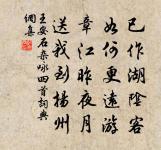 已作湖陰客
如何更遠游
章江昨夜月
送我到揚州
王安石杂詠四首詞典
網集